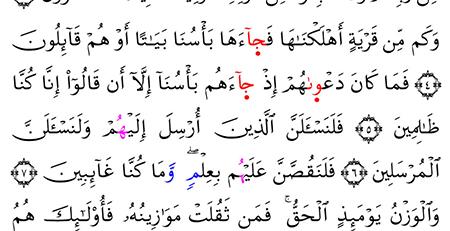 وَكَم مِّن قَرْيَةٍ أَهْلَكْنَـٰهَا فَجَآءَهَا بَأْسُنَا بَيَـٰتًا أَوْ هُمْ قَآئِلُونَ
﴿٤﴾ فَمَا كَانَ دَعْوَىٰهُمْ إِذْ جَآءَهُم بَأْسُنَآ إِلَّآ أَن قَالُوٓا۟ إِنَّا كُنَّا
ظَـٰلِمِينَ ﴿٥﴾ فَلَنَسْـَٔلَنَّ ٱلَّذِينَ أُرْسِلَ إِلَيْهُمْ وَلَنَسْـَٔلَنَّ
ٱلْمُرْسَلِينَ ﴿٦﴾ فَلَنَقُصَّنَّ عَلَيْهُم بِعِلْمٍۖ وَّمَا كُنَّا غَآئِبِينَ ﴿٧﴾
وَٱلْوَزْنُ يَوْمَئِذٍ ٱلْحَقُّۚ فَمَن ثَقُلَتْ مَوَٰزِينُهُۥ فَأُو۟لَـٰٓئِكَ هُمُ